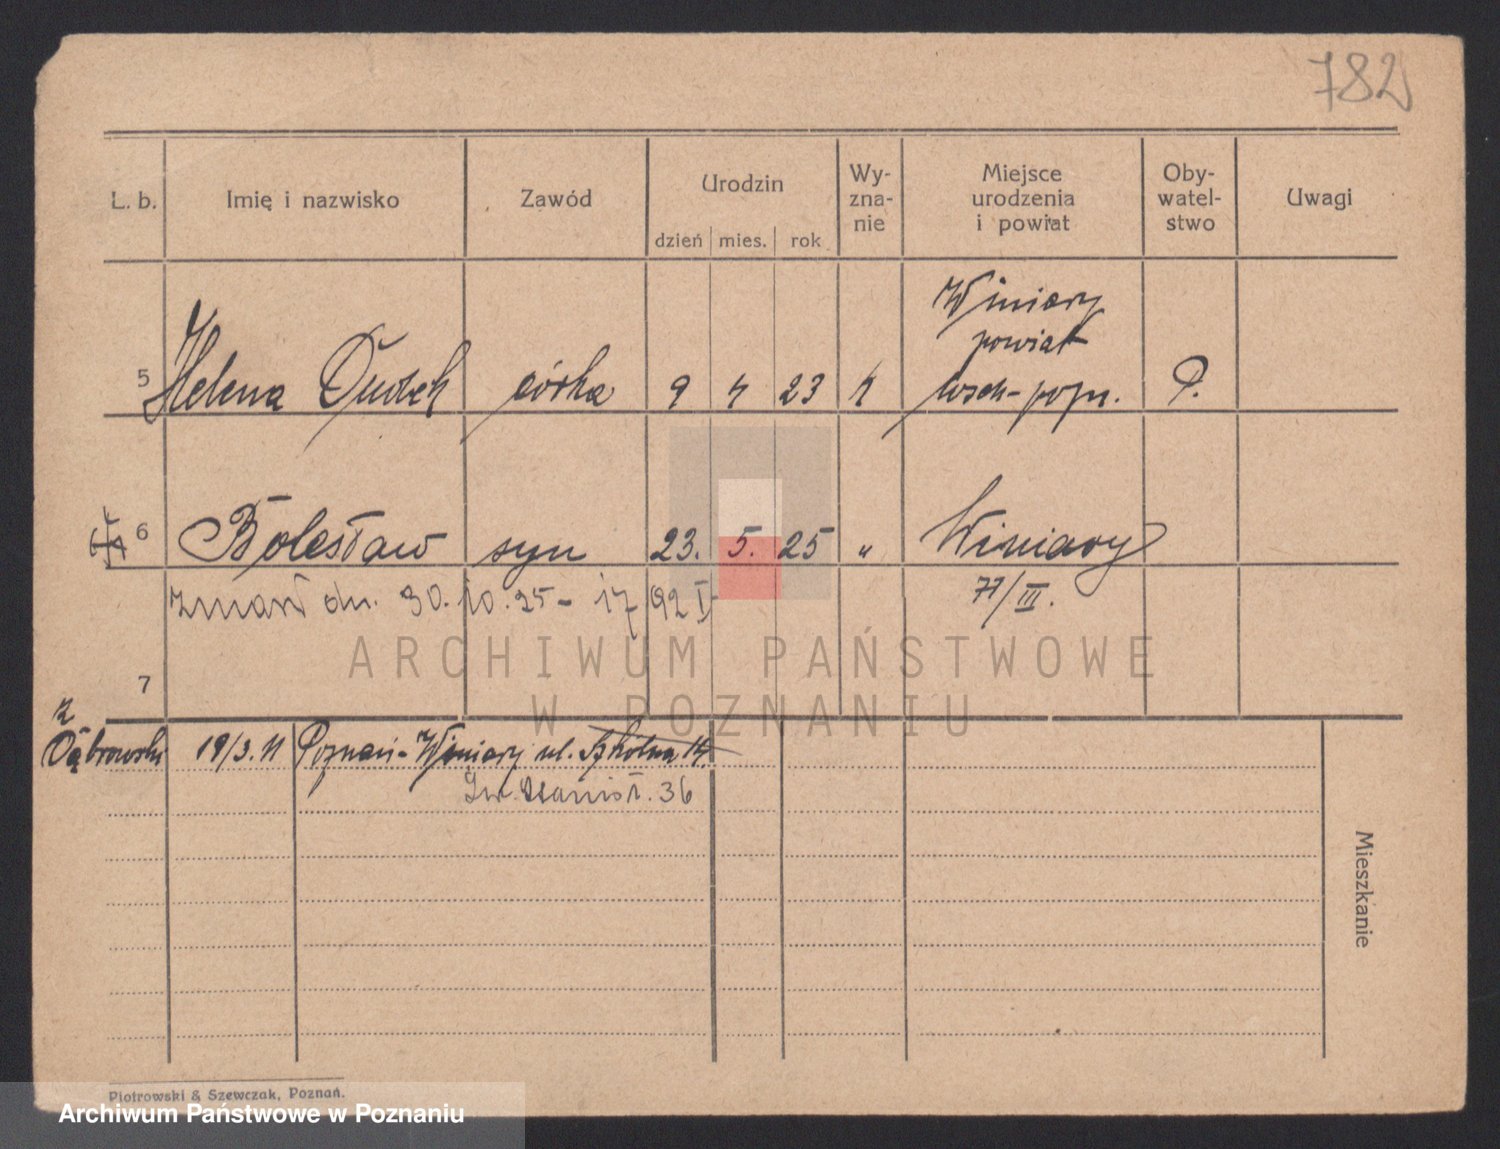 782
L. b. Imię i nazwisko Zawód Urodzin dzień mies. rok Wy-zna-nie Miejsce urodzenia i powiat Oby-watel-stwo Uwagi
Winiary
powiat
5 Helena Dudek córka 9 4 23 k wsch-pozn. P.
6 Bolesław syn 23. 5. 25 " Winiary
zmarł dn. 30. 10. 25 - 17 92 I
77/III.
ARCHIWUM PAŃSTWOWE
W POZNANIU
7
z
Dąbrowski 19/3. 11 Poznań-Winiary ul. Szkolna 14.
36
Mieszkanie
Piotrowski & Szewczak, Poznań.
Archiwum Państwowe w Poznaniu